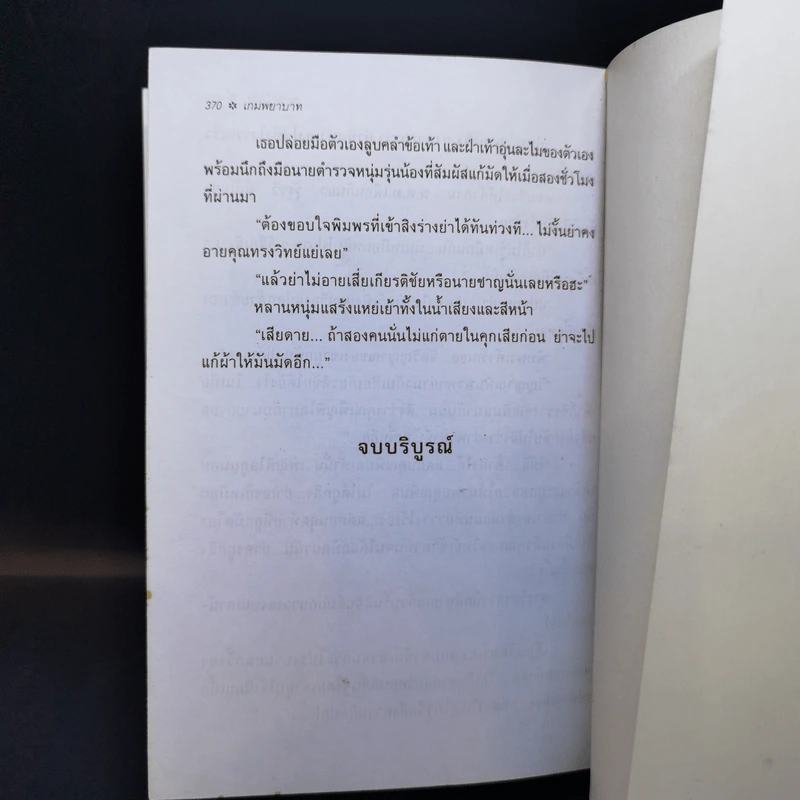 370 ✲ เกมพยาบาท
เธอปล่อยมือตัวเองลูบคลำข้อเท้า และฝ่าเท้าอุ่นละไมของตัวเอง
พร้อมนึกถึงมือนายตำรวจหนุ่มรุ่นน้องที่สัมผัสแก้มัดให้เมื่อสองชั่วโมง
ที่ผ่านมา
“ต้องขอบใจพิมพรที่เข้าสิงร่างย่าได้ทันท่วงที... ไม่งั้นย่าคง
อายคุณทรงวิทย์แย่เลย”
“แล้วย่าไม่อายเสี่ยเกียรติชัยหรือนายชาญนั่นเลยหรือฮะ”
หลานหนุ่มแสร้งแหย่เย้าทั้งในน้ำเสียงและสีหน้า
“เสียดาย... ถ้าสองคนนั่นไม่แก่ตายในคุกเสียก่อน ย่าจะไป
แก้ผ้าให้มันมัดอีก...”
จบบริบูรณ์